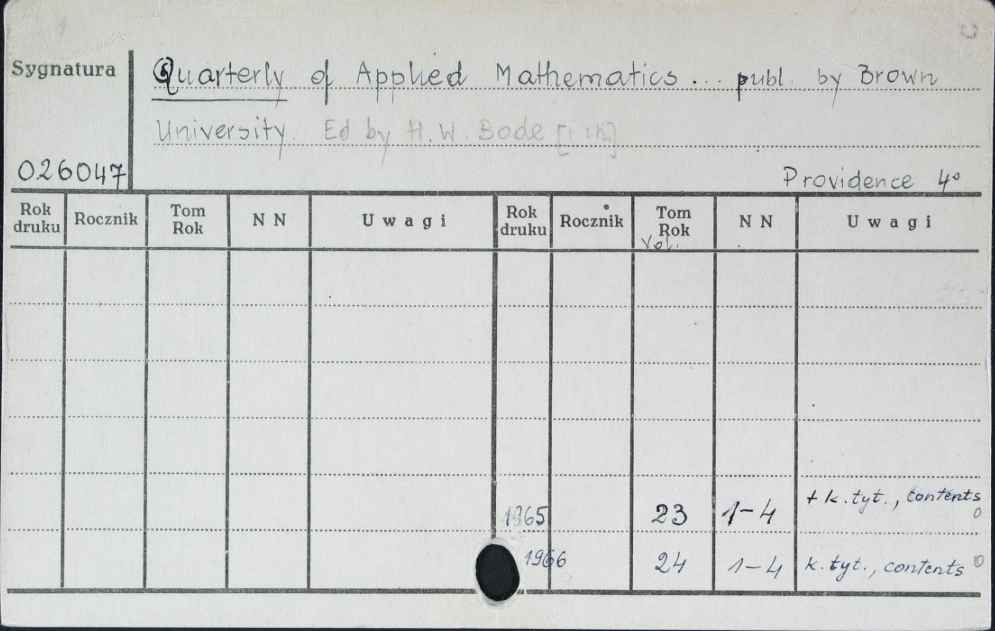 Sygnatura Quarterly of Applied Mathematics ... publ. by Brown
University. Ed by H. W. Bode [i in]
026047 Providence 4°
Rok druku Rocznik Tom Rok N N Uwagi Rok druku Rocznik Tom Rok Vol. N N Uwagi
1965 23 1-4 + k. tyt., contents
1966 24 1-4 k. tyt., contents